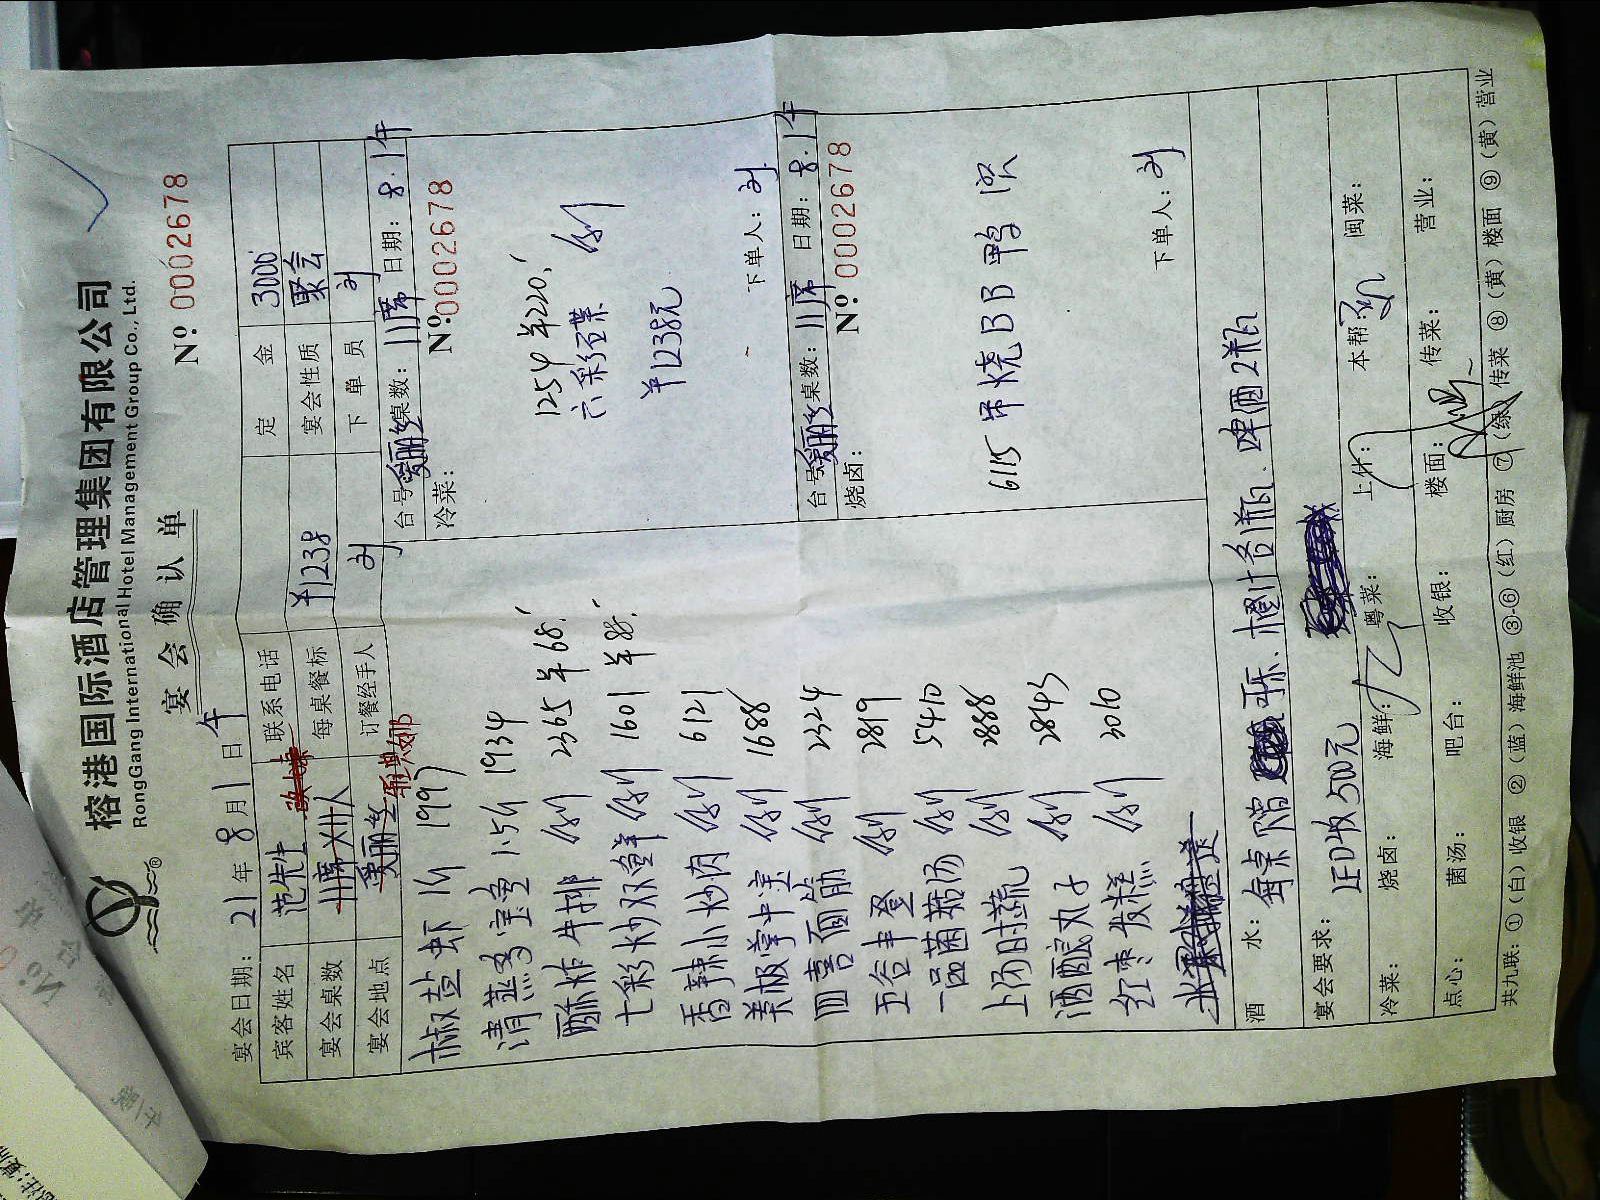 榕港国际酒店管理集团有限公司
RongGang International Hotel Management Group Co., Ltd.
宴会确认单
№: 0002678
宴会日期: 21 年 8 月 1 日 午
宾客姓名 范先生 联系电话 定金 3000
宴会桌数 11席 每桌餐标 ¥1238 宴会性质 聚会
宴会地点 爱丽丝 订餐经手人 刘 下单员 刘
台号 爱丽丝 桌数: 11席 日期: 8.1午
冷菜: №:0002678
椒盐虾 1斤 1997
清蒸多宝鱼 1.5斤 1934
酥炸牛排 例 2365 半68.
七彩炒双鲜 例 1601 半88.
香辣小炒肉 例 6121
美极掌中宝 例 1688
四喜面筋 例 2324
五谷丰登 例 2819
一品菌菇汤 例 5410
上汤时蔬 例 2888
酒酿丸子 例 2843
红枣发糕 例 3010
1254 半220.
六彩碟 例
¥1238元
下单人: 刘
台号 爱丽丝 桌数: 11席 日期: 8.1午
烧卤: №:0002678
6115 吊烧BB鸭
下单人: 刘
酒水: 每桌赠 可乐、橙汁各1瓶、啤酒2瓶
宴会要求: 正口收500元
冷菜: 烧卤: 海鲜: 粤菜: 上什: 本帮: 闽菜:
点心: 菌汤: 吧台: 收银: 楼面: 传菜: 营业:
共九联: ①(白)收银 ②(蓝)海鲜池 ③-⑥(红)厨房 ⑦(绿)传菜 ⑧(黄)楼面 ⑨(黄)营业